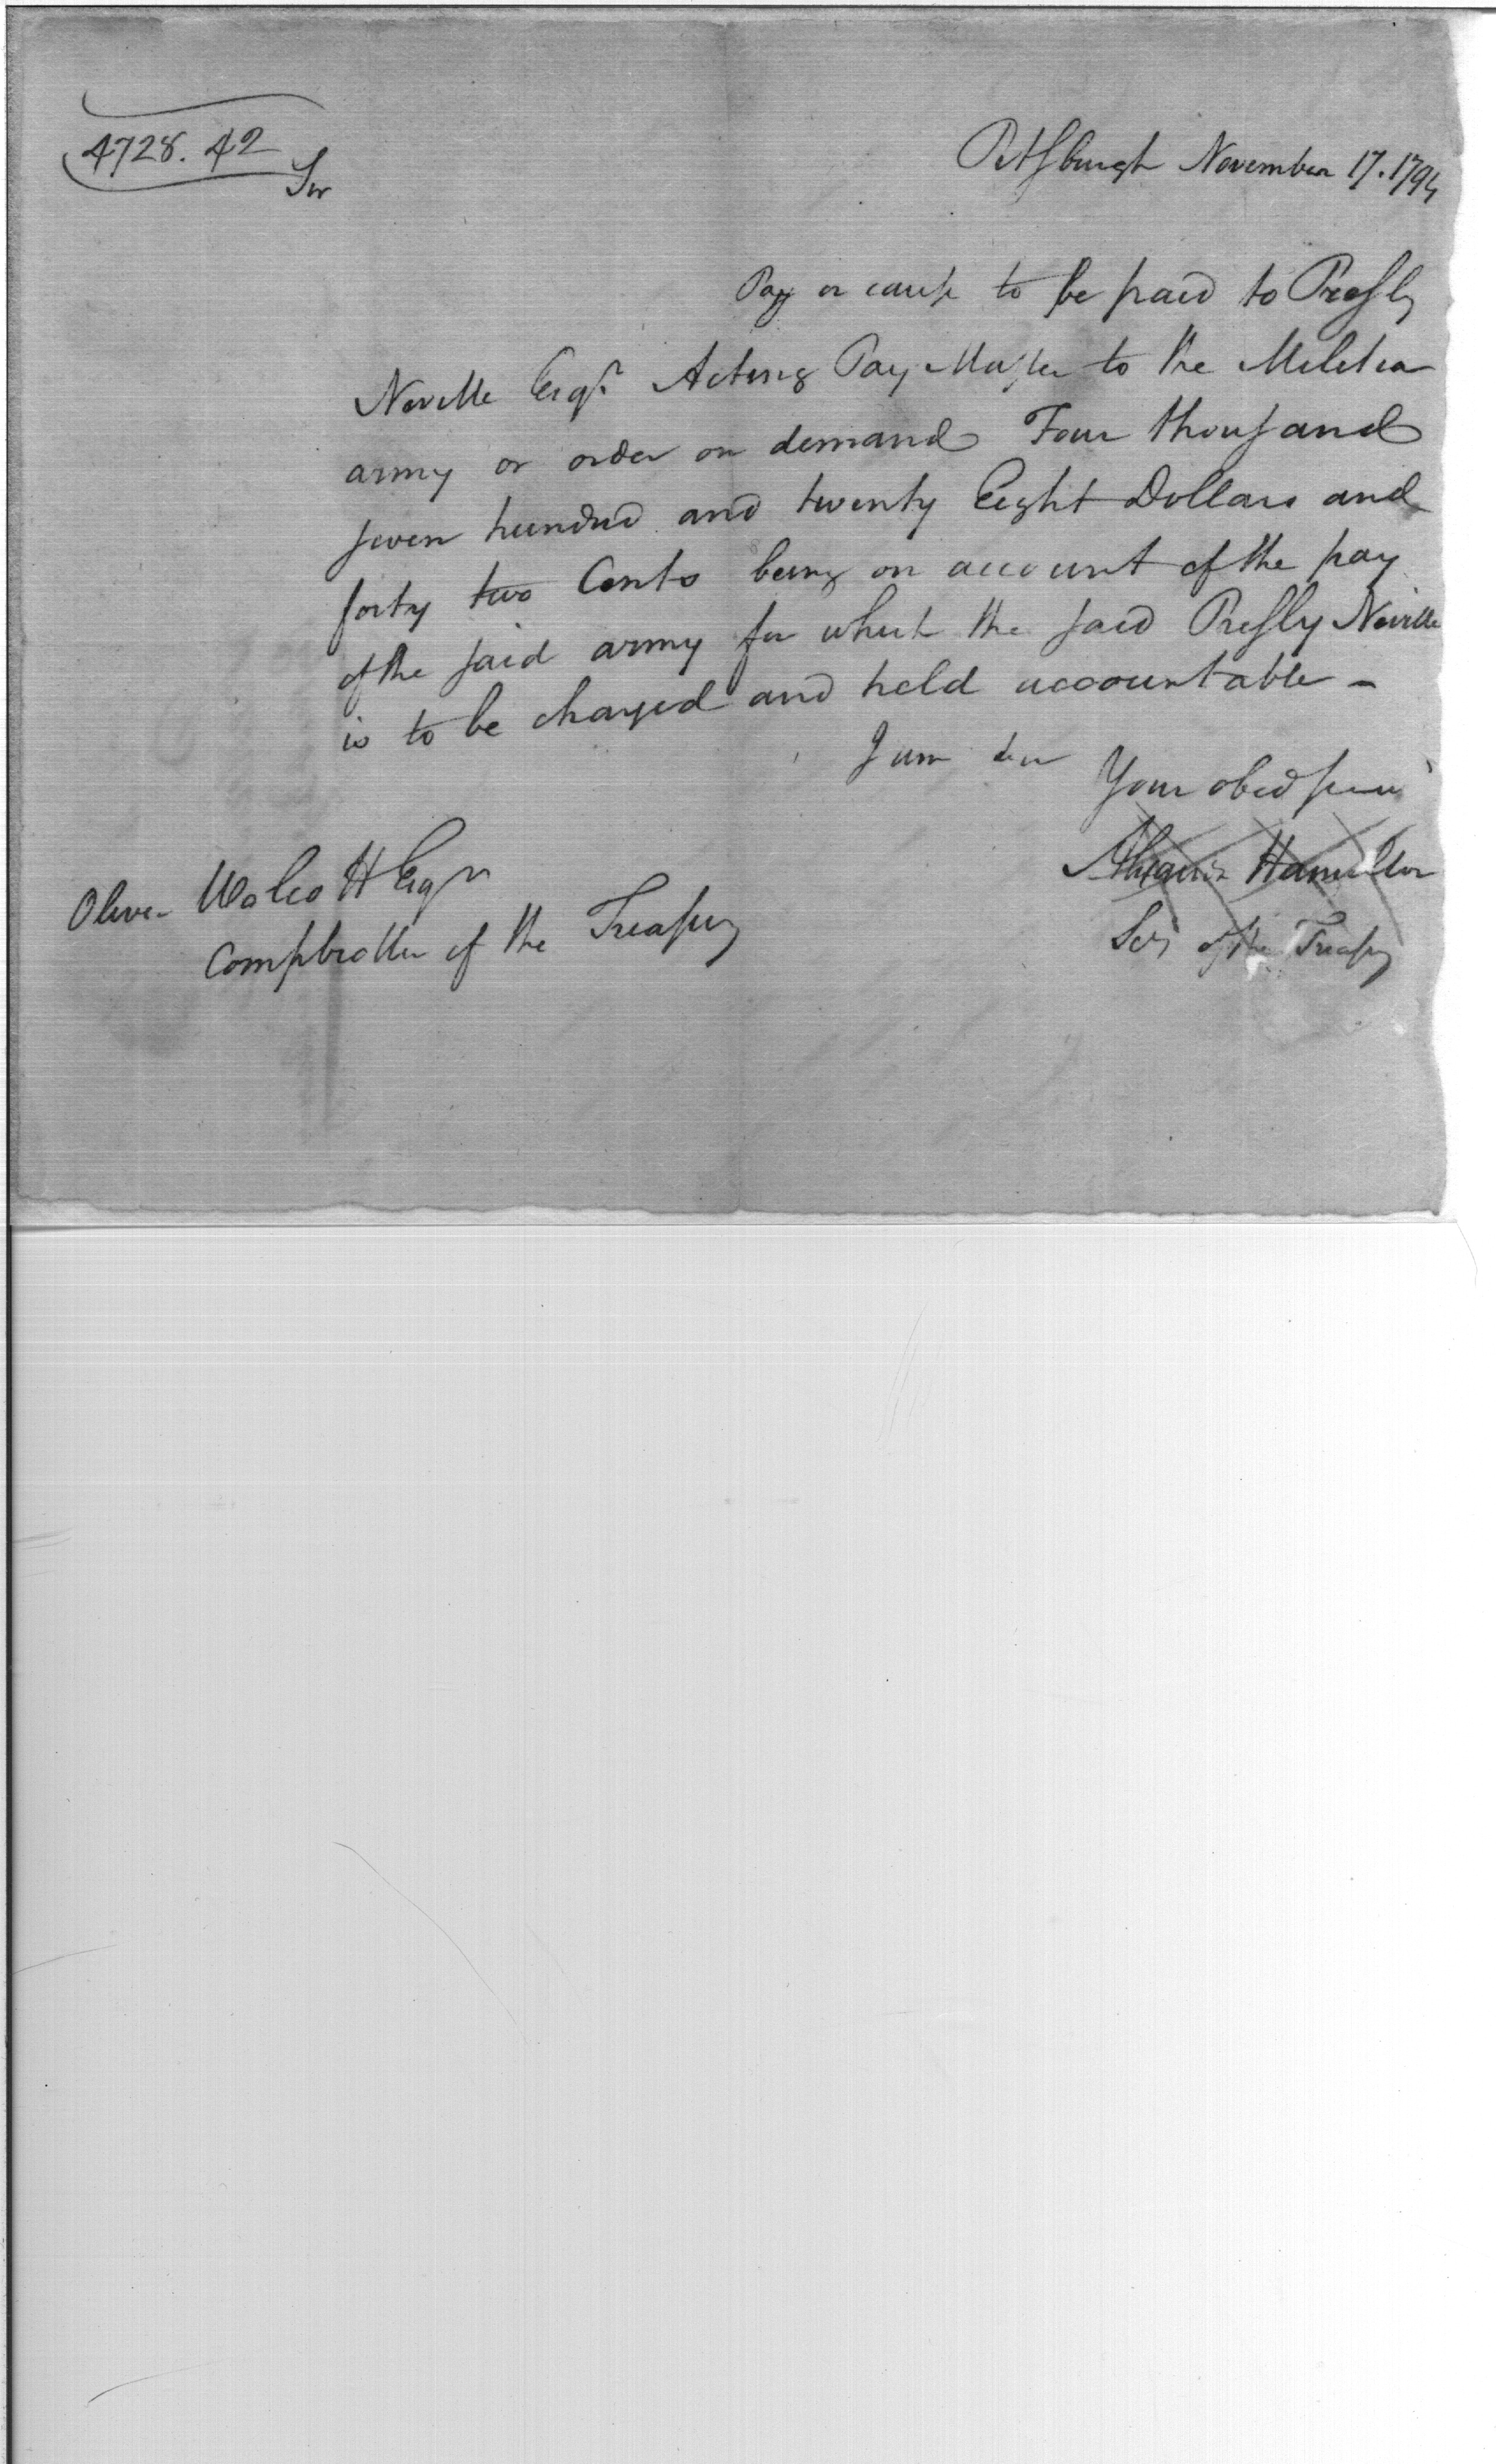 4728.42
Pittsburgh November 17. 1794
Sir
Pay or cause to be paid to Presly
Neville Esqr Acting Pay Master to the Militia
army or order on demand Four thousand
seven hundred and twenty Eight Dollars and
forty two Cents being on account of the pay
of the said army for which the said Presly Neville
is to be charged and held accountable –
I am Sir
Your obed serv
Alexander Hamilton
Secy of the Treasy
Oliver Wolcott Esqr
Comptroller of the Treasury